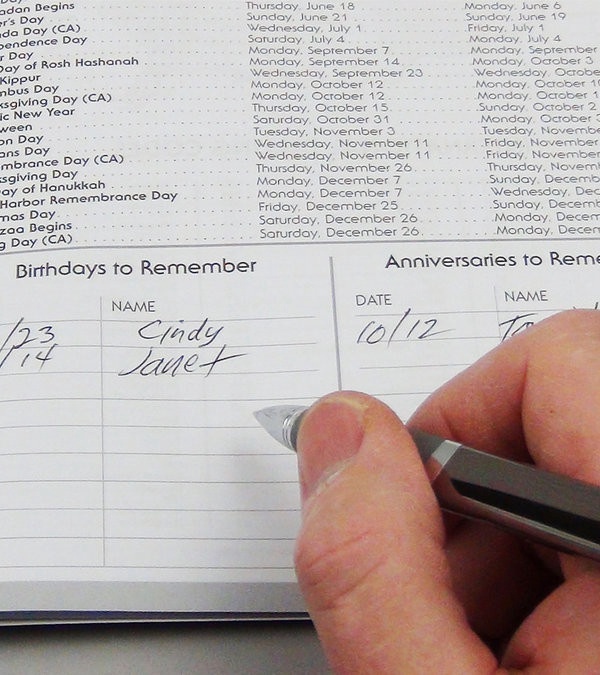 adan Begins Thursday, June 18 Monday, June 6
er's Day Sunday, June 21 Sunday, June 19
da Day (CA) Wednesday, July 1 Friday, July 1
pendence Day Saturday, July 4 Monday, July 4
r Day Monday, September 7 Monday, September
Day of Rosh Hashanah Monday, September 14 Monday, October 3
Kippur Wednesday, September 23 Wednesday, Octobe
mbus Day Monday, October 12 Monday, October 10
ksgiving Day (CA) Monday, October 12 Monday, October 1
ic New Year Thursday, October 15 Sunday, October 2
ween Saturday, October 31 Monday, October 3
on Day Tuesday, November 3 Tuesday, Novembe
ans Day Wednesday, November 11 Friday, November
mbrance Day (CA) Wednesday, November 11 Friday, November
ksgiving Day Thursday, November 26 Thursday, Novem
ay of Hanukkah Monday, December 7 Sunday, Decemb
Harbor Remembrance Day Monday, December 7 Wednesday, Dec
mas Day Friday, December 25 Sunday, Decem
zaa Begins Saturday, December 26 Monday, Decem
g Day (CA) Saturday, December 26 Monday, Decem
Birthdays to Remember Anniversaries to Reme
NAME DATE NAME
/23 Cindy 10/12
/14 Janet